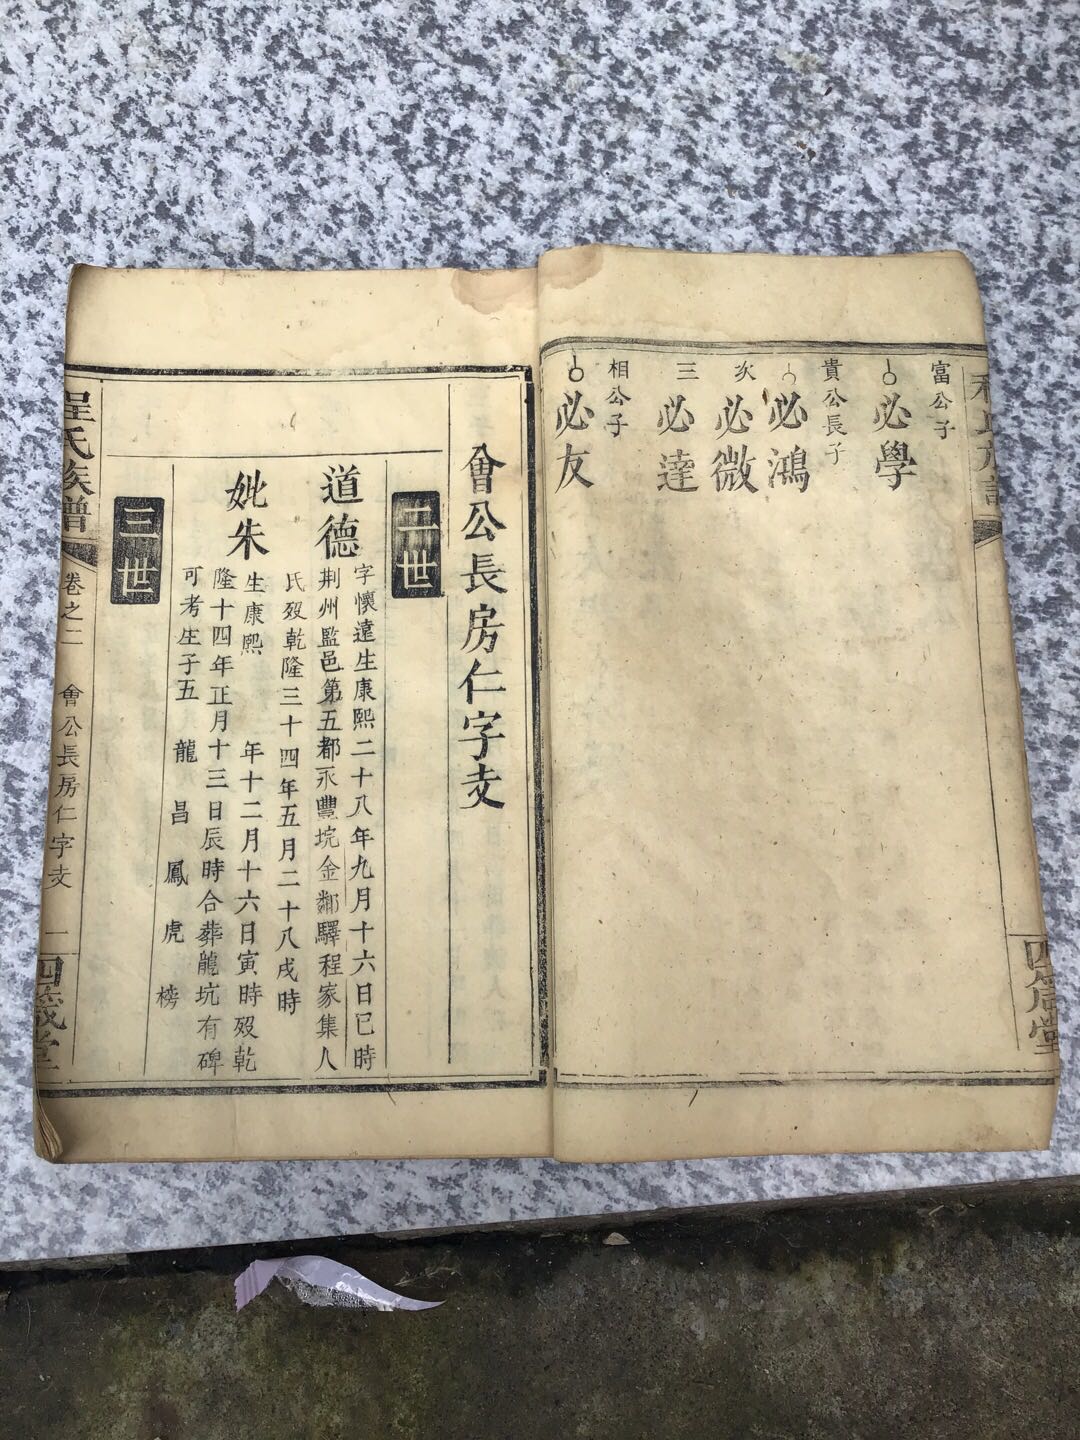 富公子
必學
貴公長子
必鴻
次
必微
三
必達
相公子
必友
會公長房仁字支
二世
道德
字懷遠生康熙二十八年九月十六日巳時
荆州監邑第五都永豐垸金鄒驛程家集人
氏歿乾隆三十四年五月二十八戌時
妣朱
生康熙 年十二月十六日寅時歿乾
隆十四年正月十三日辰時合葬龍坑有碑
可考生子五 龍 昌 鳳 虎 榜
三世
程氏族譜
卷之二 會公長房仁字支 一
四箴堂